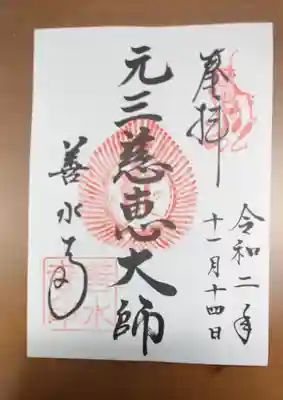 奉拝
令和二年
十一月十四日
元三慈恵大師
善水寺